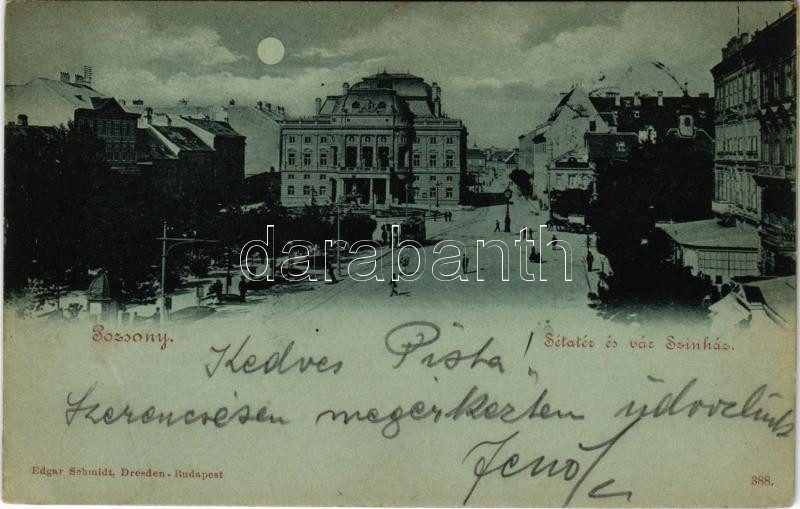 darabanth.com
Pozsony.
Sétatér és vár Szinház.
Kedves Pista!
Szerencsésen megérkeztem üdvözlünk
Jenő
Edgar Schmidt, Dresden-Budapest
388.